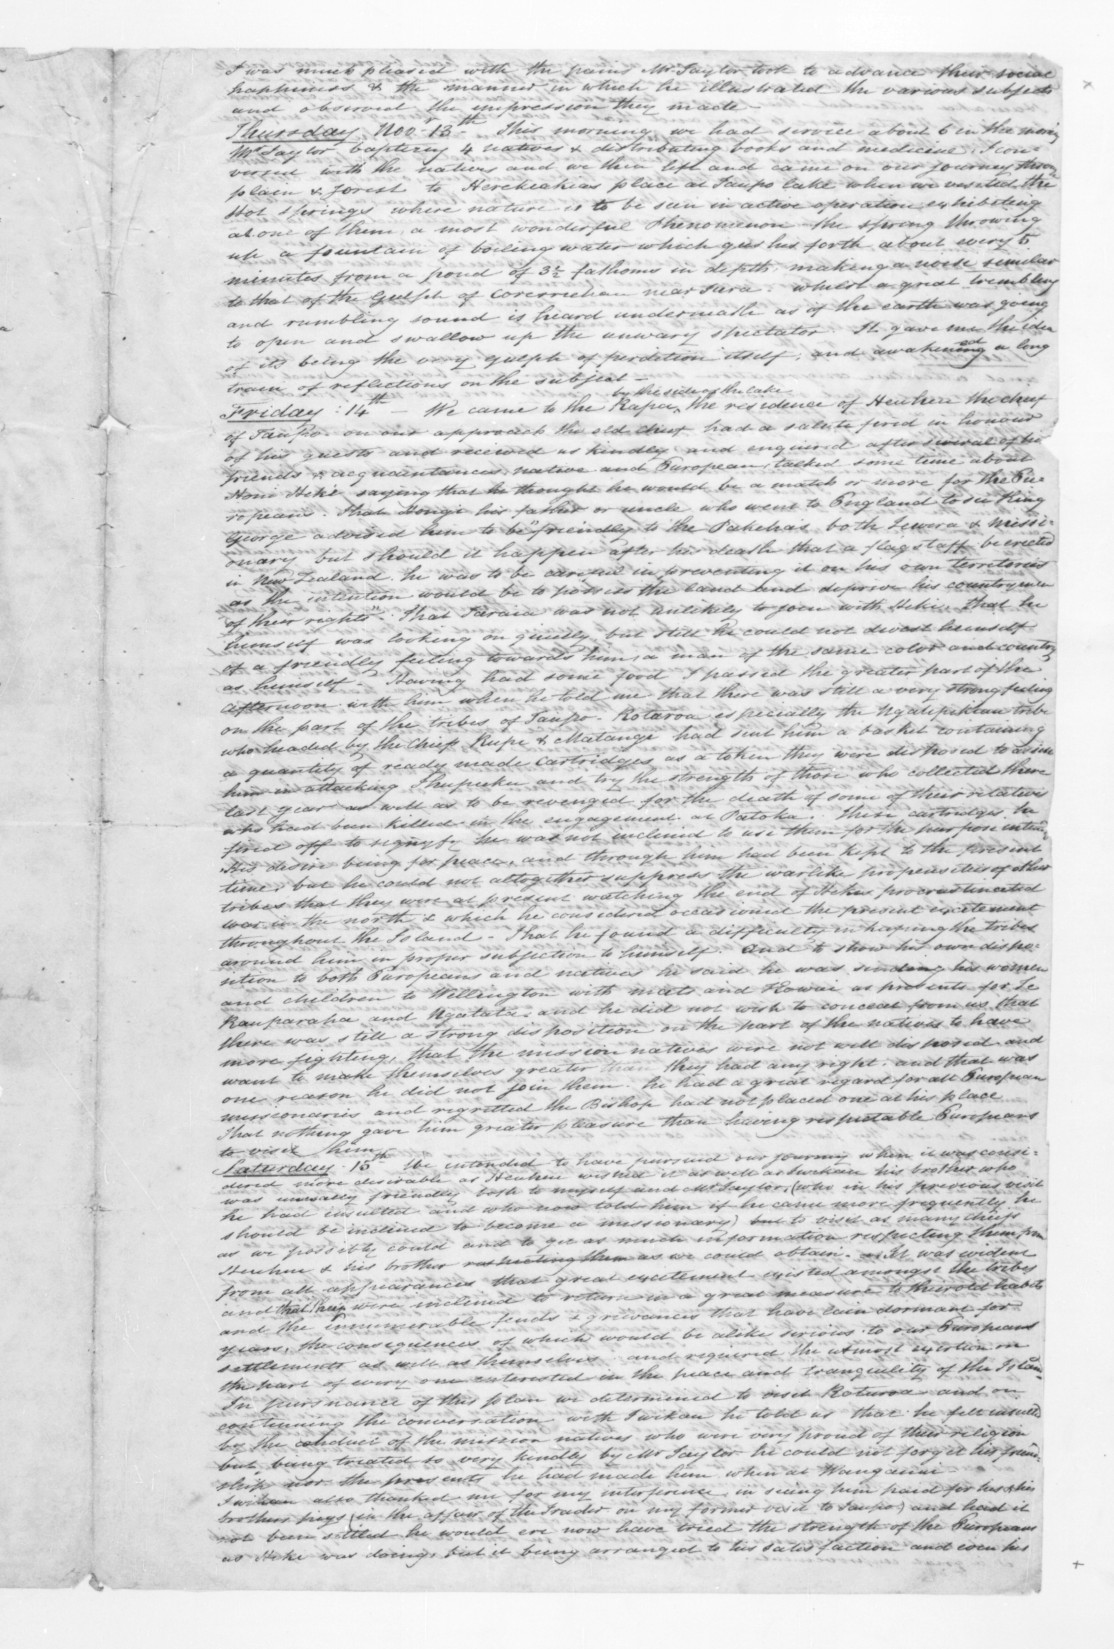 I was much pleased with the pains Mr. Taylor took to advance their social
happiness & the manner in which he illustrated the various subjects
and observed the impression they made.
Thursday Novr 13th This morning we had service about 6 in the morng
Mr Taylor baptizing 4 natives & distributing books and medicine. I con-
versed with the natives and we then left and came on our journey thro
plain & forest to Herekeekies place at Taupo lake when we visited the
Hot Springs where nature is to be seen in active operation exhibiting
at one of them, a most wonderful Phenomenon the spring throwing
up a fountain of boiling water which gushes forth about every 5
minutes from a pond of 3½ fathoms in depth, making a noise similar
to that of the Gulph of Corrivrechan near Jura: whilst a great trembling
and rumbling sound is heard underneath as if the earth was going
to open and swallow up the unwary spectator. It gave me the idea
of its being the very gulph of perdition itself, and awakened a long
train of reflections on the subject.
Friday 14th — We came to the Rapa, by the side of the lake the residence of Heuheu the chief
of Taupo. on our approach the old chief had a salute fired in honour
of his guests and received us kindly and enquired after several of his
friends & acquaintances, native and European, talked some time about
Honi Heke saying that he thought he would be a match or more for the Eu-
ropeans. That Hongi his father or uncle who went to England to see King
George advised him to be "friendly to the Pakehas, both Tewera & missi-
onary but should it happen after his death that a flagstaff be erected
in New Zealand he was to be careful in preventing it on his own territories
as the intention would be to possess the land and deprive his countrymen
of their rights". That Taraia was not unlikely to join with Heke, that he
himself was looking on quietly, but still he could not divest himself
of a friendly feeling towards him, a man of the same color and country
as himself. Having had some food I passed the greater part of the
afternoon with him when he told me that there was still a very strong feeling
on the part of the tribes of Taupo - Rotaroa especially the Ngatipikiau tribe
who headed by the Chiefs Rupe & Matangi had sent him a basket containing
a quantity of ready made cartridges as a token they were disposed to assist
him in attacking Ihupuku and try the strength of those who collected there
last year as well as to be revenged for the death of some of their relatives
who had been killed in the engagement at Patoka. These cartridges he
fired off to signify he was not inclined to use them for the purpose inten
his desire being for peace, and through him had been kept to the present
time, but he could not altogether suppress the warlike propensities of other
tribes that they were at present watching the end of Hekes procrastinated
war in the north & which he considered occasioned the present excitement
throughout the Island - That he found a difficulty in keeping the tribes
around him in proper subjection to himself. And to show his own dispo-
sition to both Europeans and natives he said he was sending his women
and children to Wellington with meats and as presents for Te
Rauparaha and Ngatata; and he did not wish to conceal from us that
there was still a strong disposition on the part of the natives to have
more fighting, that the mission natives were not well disposed and
want to make themselves greater than they had any right, and that was
one reason he did not join them. he had a great regard for all European
missionaries and regretted the Bishop had not placed one at his place
That nothing gave him greater pleasure than having respectable Europeans
to visit him.
Satterday 15th We intended to have pursued our journey when it was consi-
dered more desirable as Heuheu wished it as well as Iwikau his brother who
was unusually friendly both to myself and Mr Taylor, (who in his previous visit
he had insulted and who now told him if he came more frequently he
should be inclined to become a missionary) but to visit as many chiefs
as we possibly could and to get as much information respecting them from
Heuheu & his brother respecting them as we could obtain. It was evident
from all appearances that great excitement existed amongst the tribes
and that they were inclined to return in a great measure to their old habits
and the innumerable feuds & grievances that have lain dormant for
years, the consequences of which would be alike serious to our Europeans
settlements as well as themselves and required the utmost exertion on
the part of every one interested in the peace and tranquility of the Islan
In pursuance of this plan we determined to visit Rotorua and on
continuing the conversation with Iwikau he told us that he felt insulted
by the conduct of the mission natives who were very proud of their religion
but being treated so very kindly by Mr Taylor he could not forget his friend-
ship nor the presents he had made him when at Wanganui
Iwikau also thanked me for my interference in seeing him paid for his & his
brothers pigs (in the affair of the Trader on my former visit to Taupo) and had it
not been settled he would ere now have tried the strength of the Europeans
as Heke was doing, but it being arranged to his satisfaction and even his